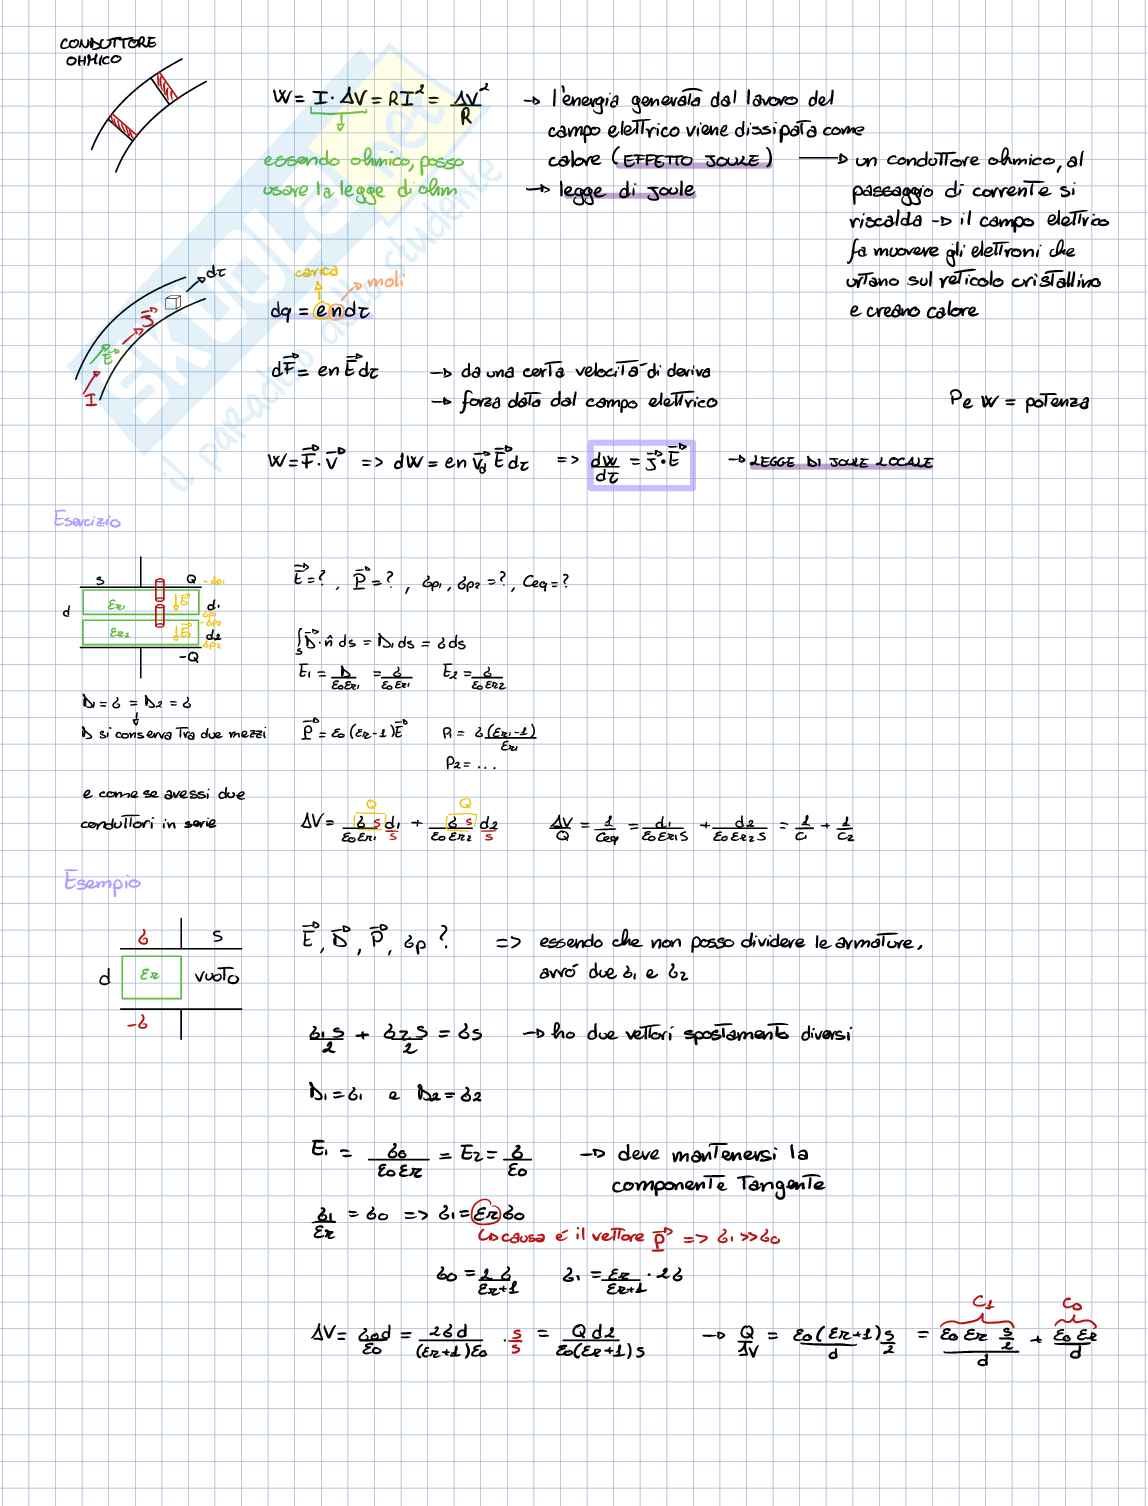 CONDUTTORE
OHMICO
W = I · ΔV = RI² = ΔV²/R → l'energia generata dal lavoro del
campo elettrico viene dissipata come
essendo ohmico, posso
calore (EFFETTO JOULE) → un conduttore ohmico, al
usare la legge di ohm
→ legge di Joule
passaggio di corrente si
riscalda → il campo elettrico
fa muovere gli elettroni che
urtano sul reticolo cristallino
e creano calore
SKUOLA.net
il paradiso dello studente
dτ
J
E
I
carica
moli
dq = e n dτ
dF = en E dτ → da una certa velocità di deriva
→ forza data dal campo elettrico
P e W = potenza
W = F · v => dW = en vd E dτ => dW/dτ = J · E → LEGGE DI JOULE LOCALE
Esercizio
S Q
d εr1 E d1
εr2 E d2
-Q
E = ? , P = ? , σp1, σp2 = ?, Ceq = ?
∫s D · n̂ ds = D1 ds = σ ds
E1 = D/ε0εr1 = σ/ε0εr1 E2 = σ/ε0εr2
D1 = σ = D2 = σ
D si conserva tra due mezzi
P = ε0 (εr-1) E P1 = σ (εr1-1)/εr1
P2 = ...
e come se avessi due
conduttori in serie
Q Q
ΔV = σ s d1/ε0εr1 s + σ s d2/ε0εr2 s ΔV/Q = 1/Ceq = d1/ε0εr1 S + d2/ε0εr2 S = 1/C1 + 1/C2
Esempio
σ S
d εr VUOTO
-σ
E, D, P, σp ? => essendo che non posso dividere le armature,
avrò due σ1 e σ2
σ1 S/2 + σ2 S/2 = σS → ho due vettori spostamento diversi
D1 = σ1 e D2 = σ2
E1 = σ0/ε0εr = E2 = σ/ε0 → deve mantenersi la
componente tangente
σ1/εr = σ0 => σ1 = εr σ0
↳ causa é il vettore P => σ1 >> σ0
σ0 = 2σ/εr+1 σ1 = εr/εr+1 · 2σ
C1 C0
ΔV = σ0 d/ε0 = 2σd/(εr+1)ε0 · s/s = Q d2/ε0(εr+1)S → Q/ΔV = ε0(εr+1)/d S/2 = ε0 εr S/2/d + ε0 εr/d